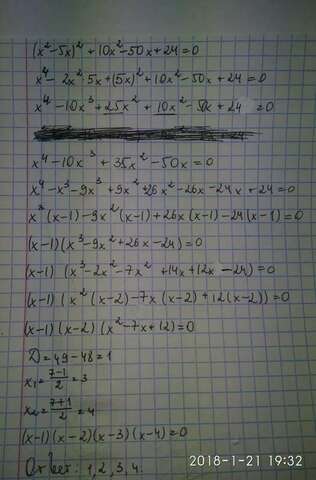 (x²-5x)² + 10x² - 50x + 24 = 0
x⁴ - 2x²·5x + (5x)² + 10x² - 50x + 24 = 0
x⁴ - 10x³ + 25x² + 10x² - 50x + 24 = 0
x⁴ - 10x³ + 35x² - 50x = 0
x⁴ - x³ - 9x³ + 9x² + 26x² - 26x - 24x + 24 = 0
x³(x-1) - 9x²(x-1) + 26x(x-1) - 24(x-1) = 0
(x-1)(x³ - 9x² + 26x - 24) = 0
(x-1)(x³ - 2x² - 7x² + 14x + 12x - 24) = 0
(x-1)(x²(x-2) - 7x(x-2) + 12(x-2)) = 0
(x-1)(x-2)(x² - 7x + 12) = 0
D = 49 - 48 = 1
x₁ = (7-1)/2 = 3
x₂ = (7+1)/2 = 4
(x-1)(x-2)(x-3)(x-4) = 0
Ответ: 1, 2, 3, 4.
2018-1-21 19:32